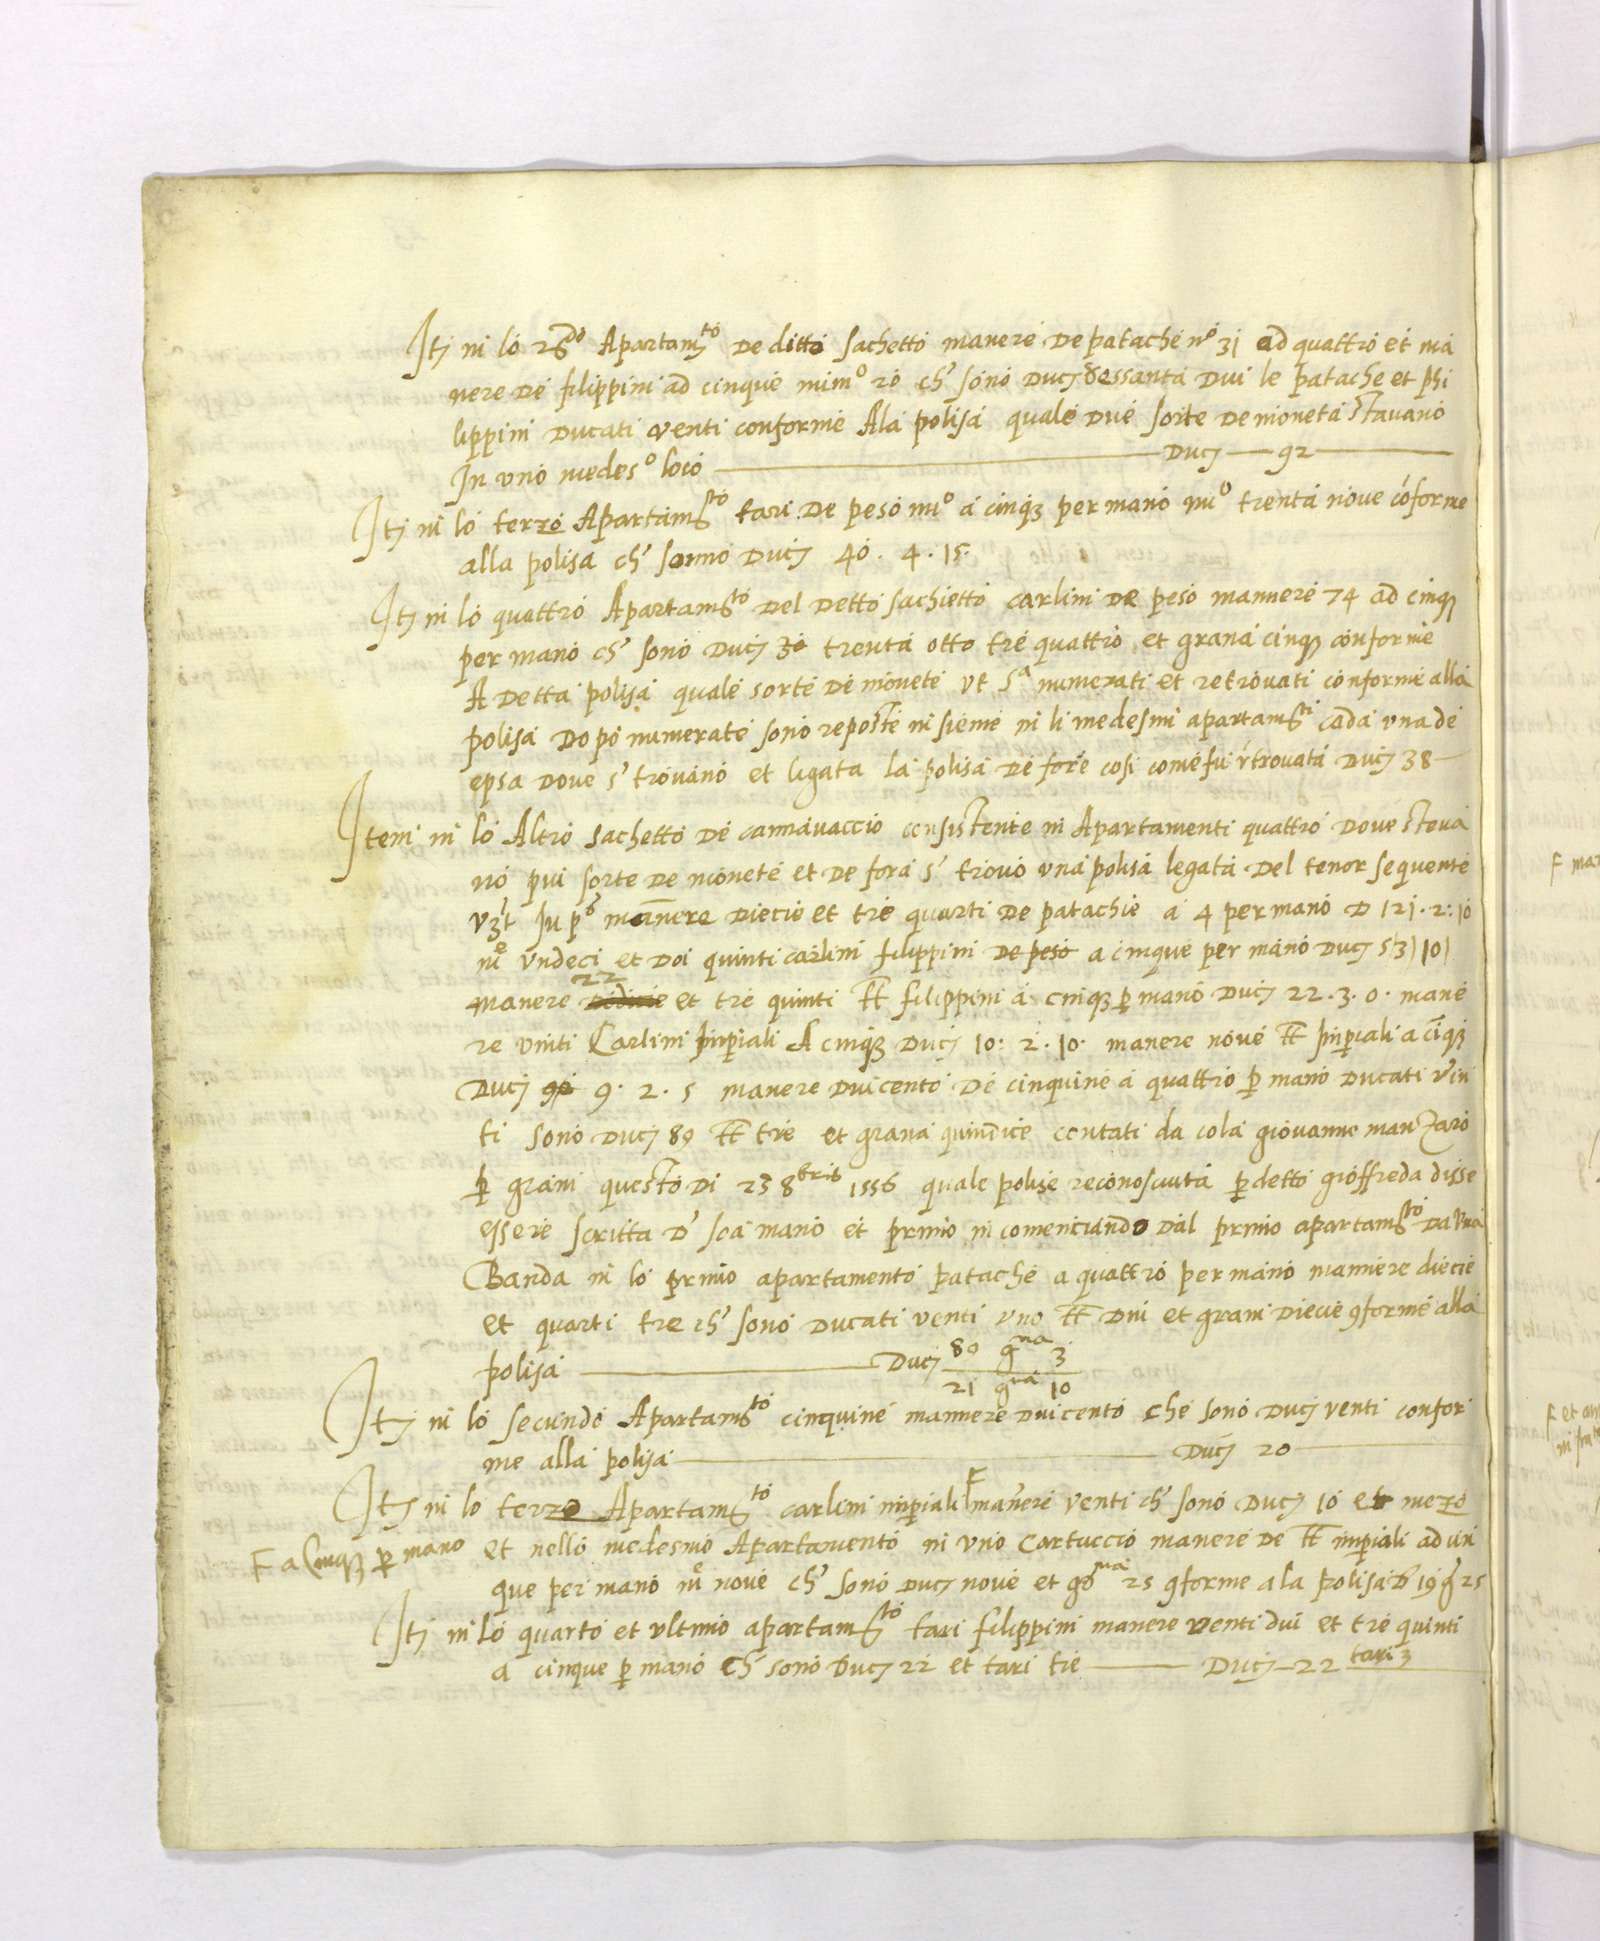 Itȝ in lo 2do Apartamto de ditto sachetto manere de patache no 31 ad quattro et ma
nere de filippini ad cinque nummo 20 che sono Ducȝ sessanta dui le patache et phi
lippini Ducati venti conforme Ala polisa quale due sorte de moneta stavano
In uno medeso loco Ducȝ 92
Itȝ in lo terzo Apartamto tari de peso nuo a cinqȝ per mano nuo trenta nove coforme
alla polisa che sonno Ducȝ 40 . 4 . 15
Itȝ in lo quattro Apartamto del detto sachietto carlini de peso mannere 74 ad cinqȝ
per mano che sono Ducȝ trenta otto tre quattro et grana cinqȝ conforme
A detta polisa quale sorte de monete ut sa numerati et retrovati conforme alla
polisa dopo numerate sono reposte insieme in li medesmi apartamti cada una de
epsa dove se trovano et ligata la polisa de fore cosi come fu rtrovata Ducȝ 38
Item in lo Altro sachetto de cannavaccio consistente in Apartamenti quattro dove steva
no piu sorte de monete et de fora se trovo una polisa legata del tenor sequente
vȝt In po mannere diecie et tre quarti de patachie a 4 per mano D 121 . 2 : 10
no undeci et doi quinti carlini filippini de peso a cinque per mano Ducȝ 5 3 10
manere 22 et tre quinti tt filippini a cinqȝ p mano Ducȝ 22 . 3 . 0 . mane
re vinti Carlini Imperiali A cinqȝ Ducȝ 10 : 2 . 10 . manere nove tt Imperiali a cinqȝ
Ducȝ 9 . 2 . 5 manere duicento de cinquine a quattro p mano Ducati vin
ti sono Ducȝ 89 tt tre et grana quindice contati da cola giovanne manzaro
p grani questo di 23 8bris 1556 quale polise reconosciuta p detto gioffreda disse
essere scritta de soa mano et primo incomenciando dal primo apartamto da una
Banda in lo primo apartamento patache a quattro per mano mannere diecie
et quarti tre che sono Ducati venti uno tt dui et grani diecie 9forme alla
polisa Ducȝ 89 gna 3
21 gna 10
Itȝ in lo secundo Apartamto cinquine mannere duicento che sono Ducȝ venti confor
me alla polisa Ducȝ 20
Itȝ in lo terzo Apartamto carlini imperiali F manere venti che sono Ducȝ 10 et mezo
F a Cinqȝ p mano
et nello medesmo Apartamento in uno Cartuccio manere de tt imperiali ad cin
que per mano no nove che sono Ducȝ nove et gna 25 9forme a la polisa D 19 g 25
Itȝ in lo quarto et ultimo apartamto tari filippini manere venti dui et tre quinti
a cinque p mano che sono Ducȝ 22 et tari tre Ducȝ 22 tari 3